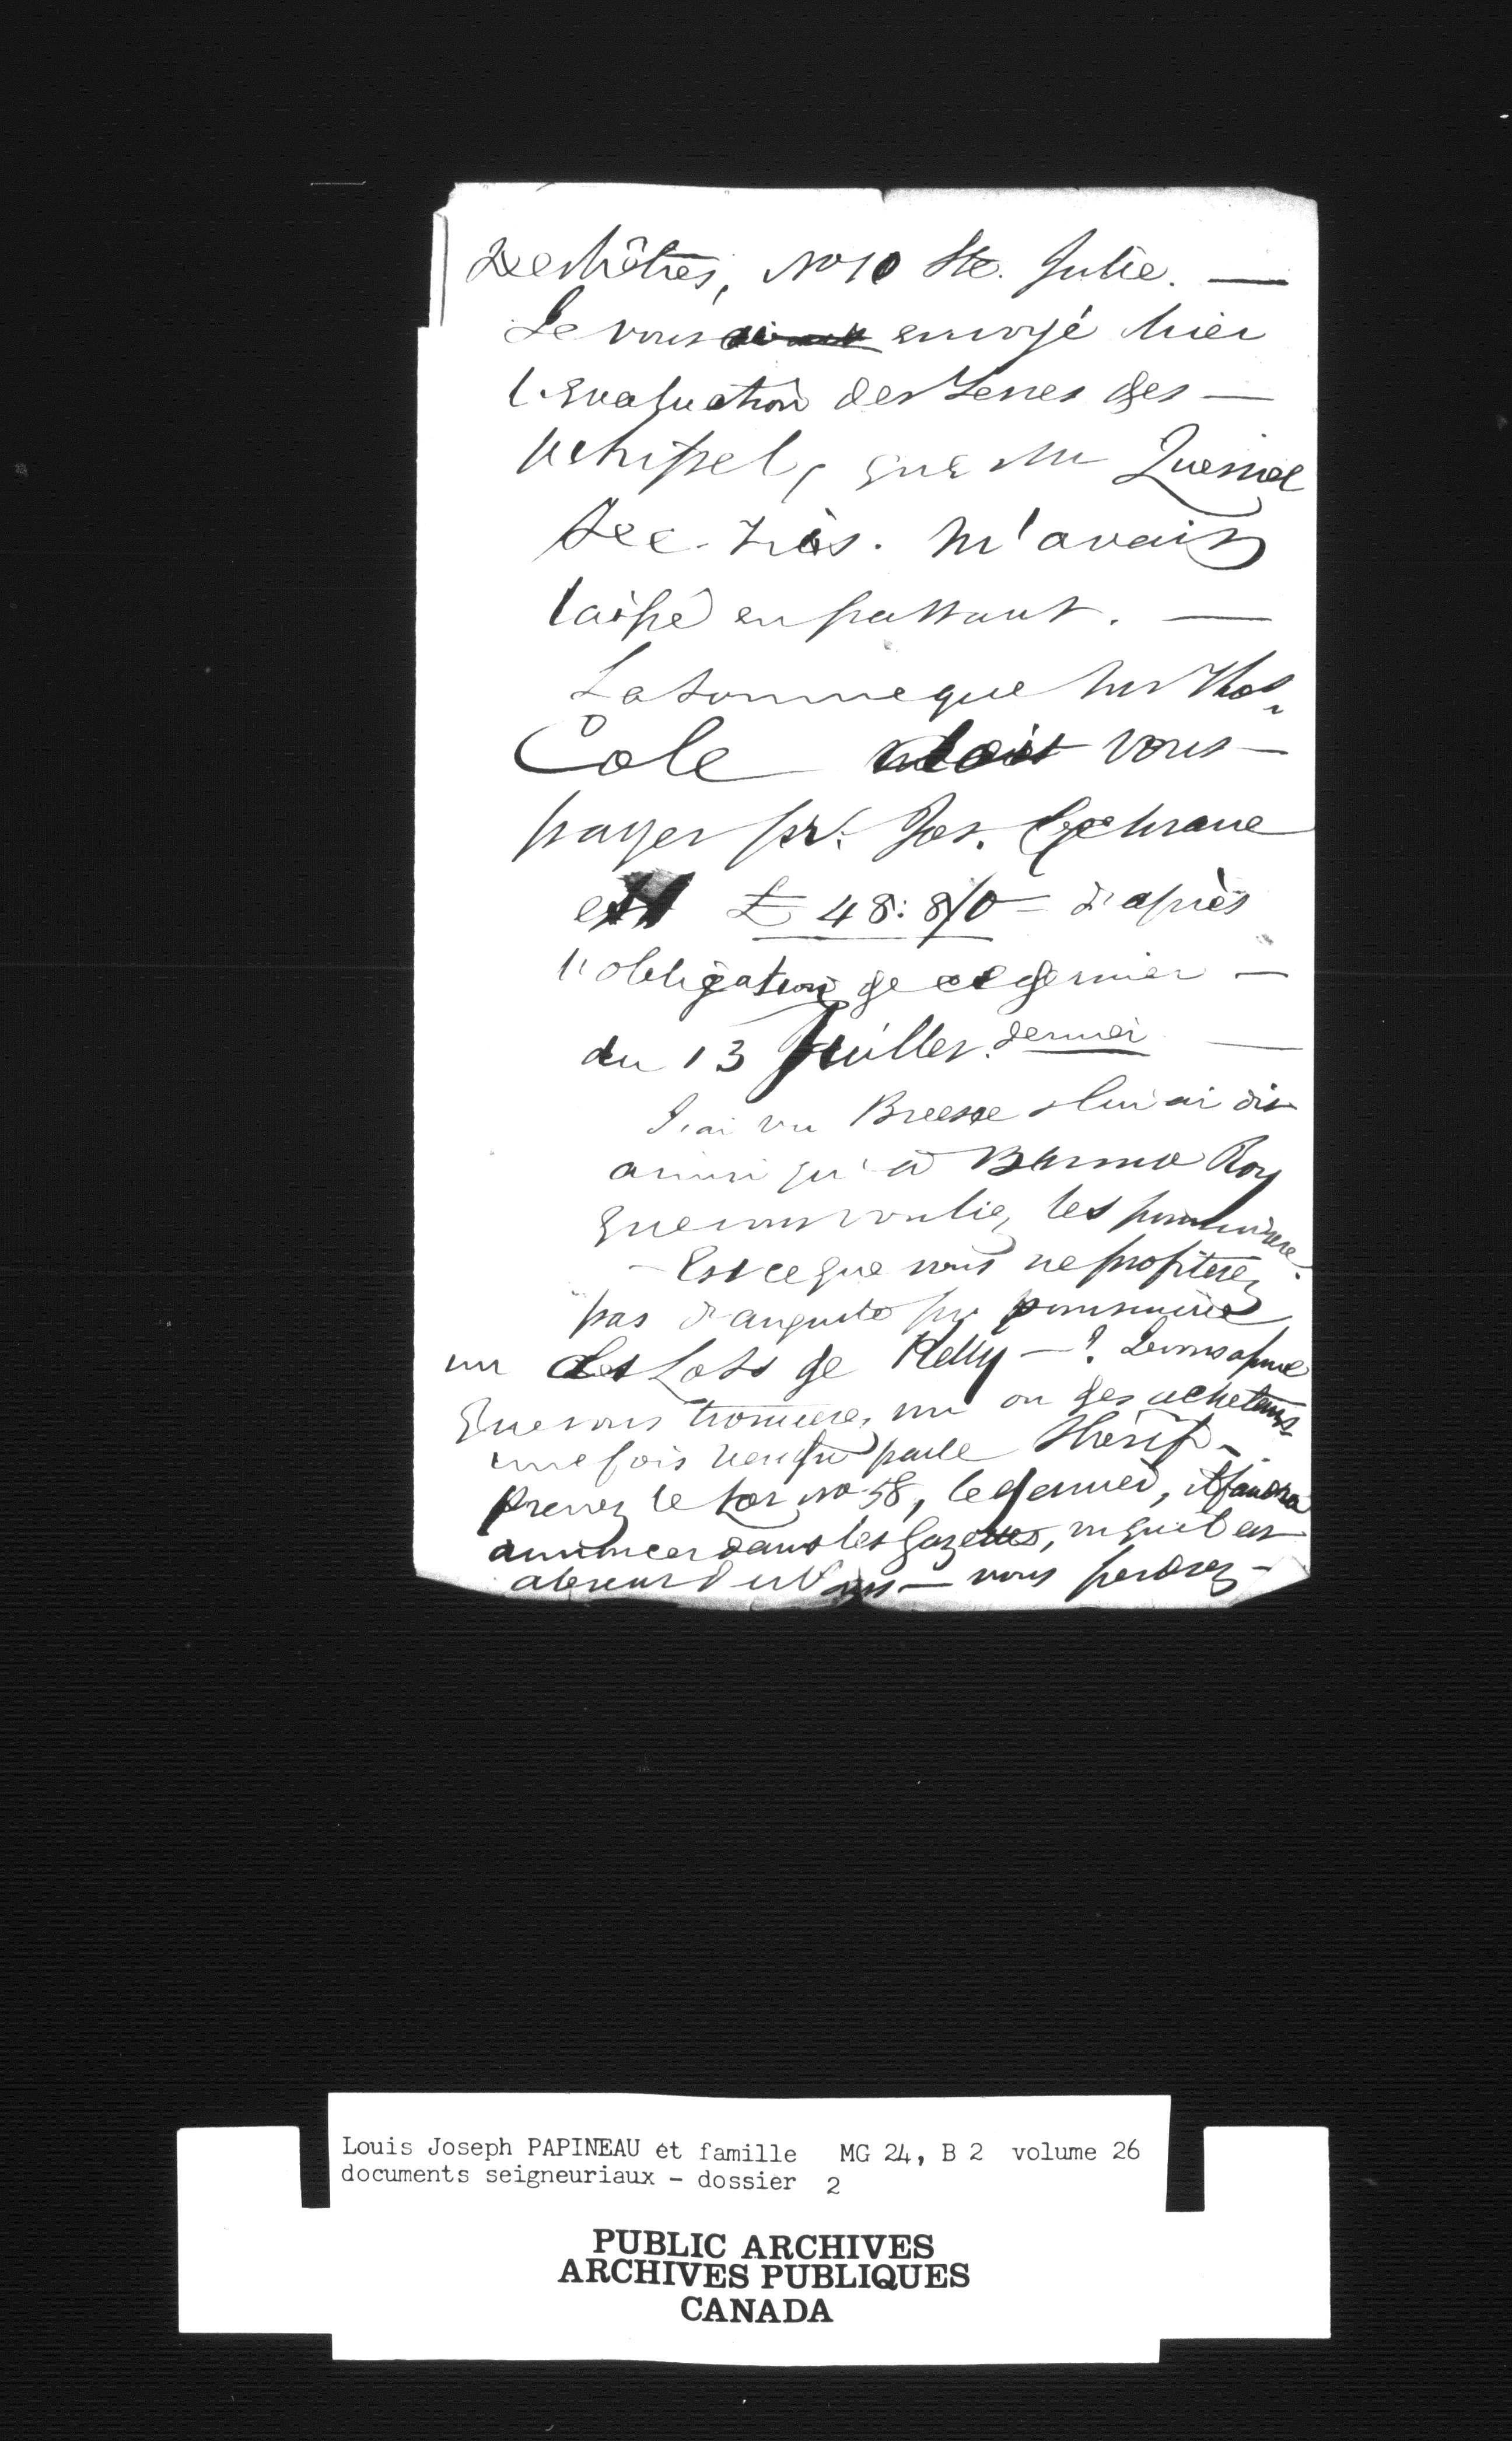 Deshêtres, No 10 Ste. Julie. —
Je vous envoyé hier
l'evaluation des Terres des —
petripel, que Mr Quesnel
Sec. Très. m'avait
laissé en passant. —
La somme que Mr Thos
Cole doit vous —
payer pr. Jos. Cochrane
est £ 48: 8/0 = d'après
l'obligation de ce dernier —
du 13 Juillet. dernier —
J'ai vu Breese & lui ai dit
ainsi qu'à Roy
que vous vouliez les poursuivre.
— Est ce que vous ne profiterez
pas d'auguste pr poursuivre
un des Lots de Kelly — ? Je vous assure
que vous trouverez un ou des acheteurs
une fois vendu par le Shérif —
Prenez le Lot No 58, le dernier, il faudra
annoncer dans les Gazettes, vu qu'il est
absent — vous perdrez —
Louis Joseph PAPINEAU et famille MG 24, B 2 volume 26
documents seigneuriaux - dossier 2
PUBLIC ARCHIVES
ARCHIVES PUBLIQUES
CANADA